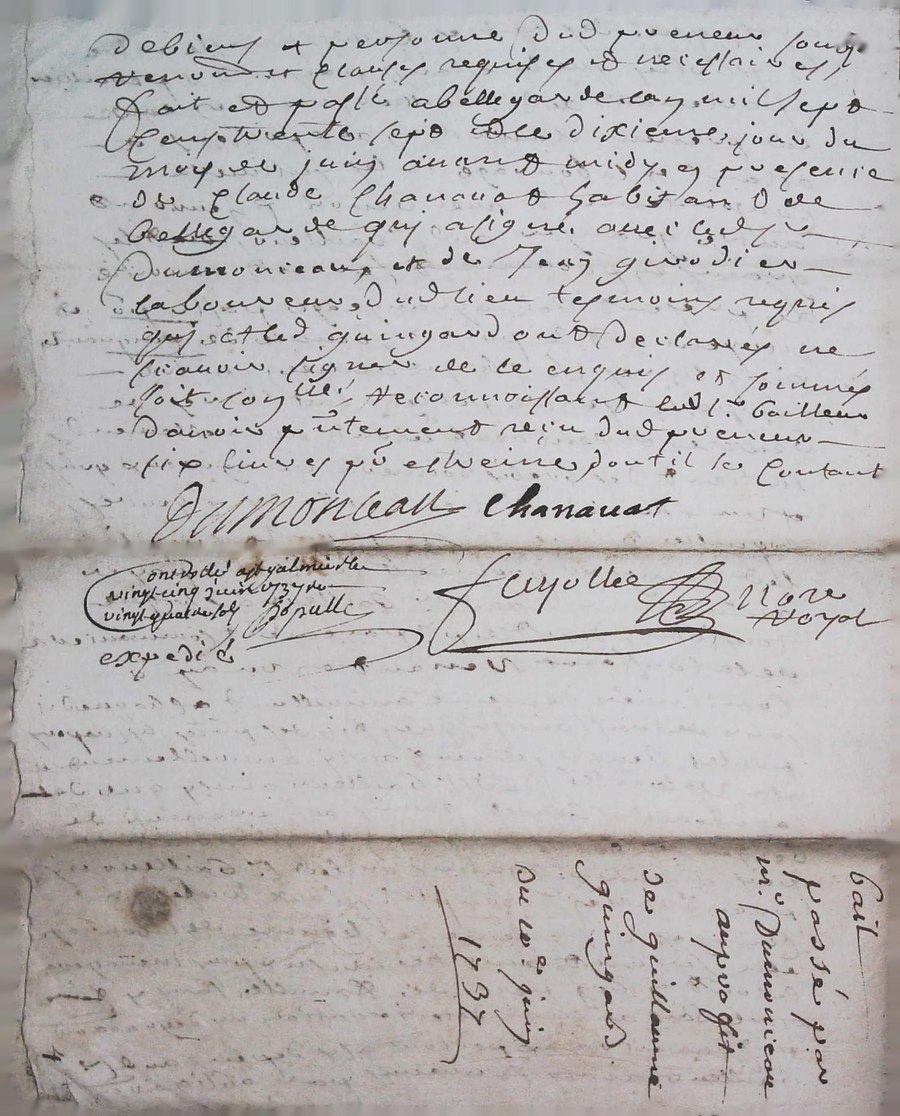 debiens et personne dud preneur sous
renon et clauses requises et necessaires,
fait et passé abellegarde lan mil sept
cens trente sept et le dixieme jour du
mois de juin avant midy en presence
de Claude Chanavat habitant de
bellegarde qui a signé avec led sr
dumonceau, et de Jean girodier
laboureur dud lieu tesmoins requis
qui et led guingard ont declarés ne
scavoir signer de ce enquis et sommés
soit con^llé, reconnoissant led Sr bailleur
davoir p^ntement reçu dud preneur
six livres p^r estreine dont il se contant
Dumonceau Chanavat
controllé a st galmier le
vingt cinq juin 1737 re
vingt quatre sols
expedié
Nore
Royal
bail
passé par
mr. Dumonceau
au proffit
de guillaume
guingard
du 10e juin
1737